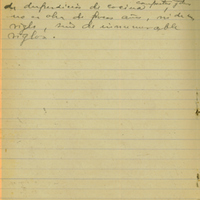 de dispersión de cocinas
no es obra de pocos años, ni de
siglo, sino de innumerable
siglos.